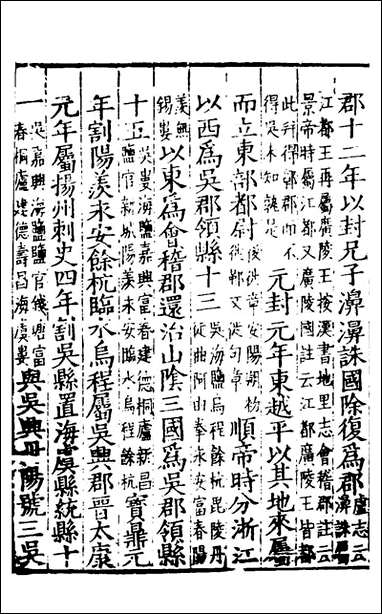 郡十二年以封兄子濞濞誅國除復爲郡盧志云濞誅屬
江都王再屬廣陵王按漢書地里志會稽郡註云
景帝時屬江都又廣陵國註云江都廣陵王皆都
此拜得鄣郡而不得吳未知是元封元年東越平以其地來屬
而立東部都尉後徙章安陽朝徙鄞又徙句章順帝時分浙江
以西爲吳郡領縣十三吳海鹽烏程餘杭毗陵丹徒曲阿由拳永安富春陽
羨無錫婁以東爲會稽郡還治山陰三國爲吳郡領縣
十五吳婁海鹽嘉興富春建德桐廬新昌鹽官新城陽羨永安臨水烏程餘杭寶鼎元
年割陽羨永安餘杭臨水烏程屬吳興郡晉太康
元年屬揚州刺史四年割吳縣置海虞縣統縣十
一吳嘉興海鹽鹽官錢唐富春桐廬建德壽昌海虞婁與吳興丹陽號三吳